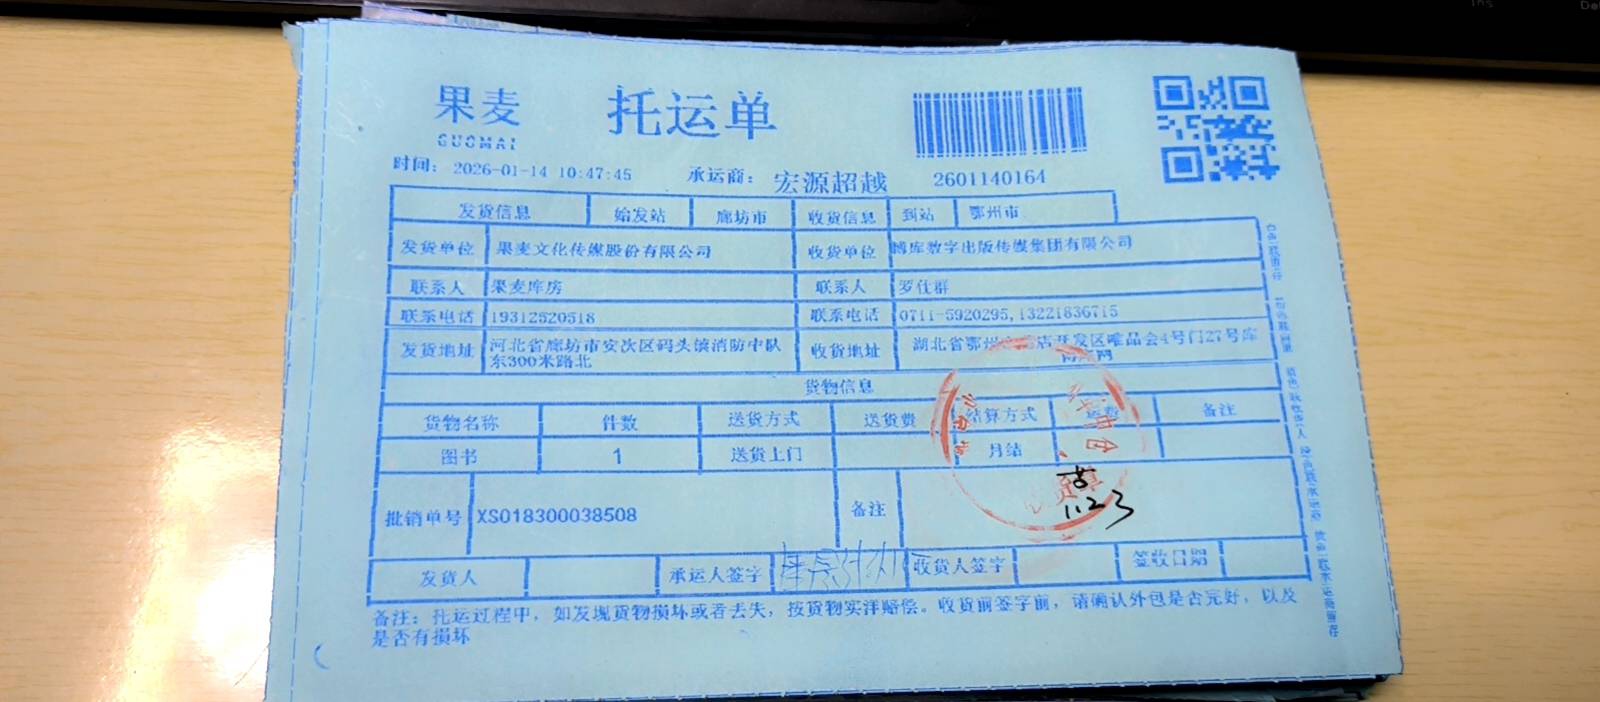 果麦
GUOMAI
托运单
时间: 2026-01-14 10:47:45 承运商: 宏源超越 2601140164
发货信息 始发站 廊坊市 收货信息 到站 鄂州市
发货单位 果麦文化传媒股份有限公司 收货单位 博库数字出版传媒集团有限公司
联系人 果麦库房 联系人 罗仕群
联系电话 19312520518 联系电话 0711-5920295,13221836715
发货地址 河北省廊坊市安次区码头镇消防中队
东300米路北
收货地址 湖北省鄂州 店开发区唯品会4号门27号库
网
货物信息
货物名称 件数 送货方式 送货费 结算方式 运费 备注
图书 1 送货上门 月结
批销单号 XS018300038508 备注
1.23
发货人 承运人签字 收货人签字 签收日期
备注: 托运过程中, 如发现货物损坏或者丢失, 按货物实洋赔偿。收货前签字前, 请确认外包是否完好, 以及
是否有损坏